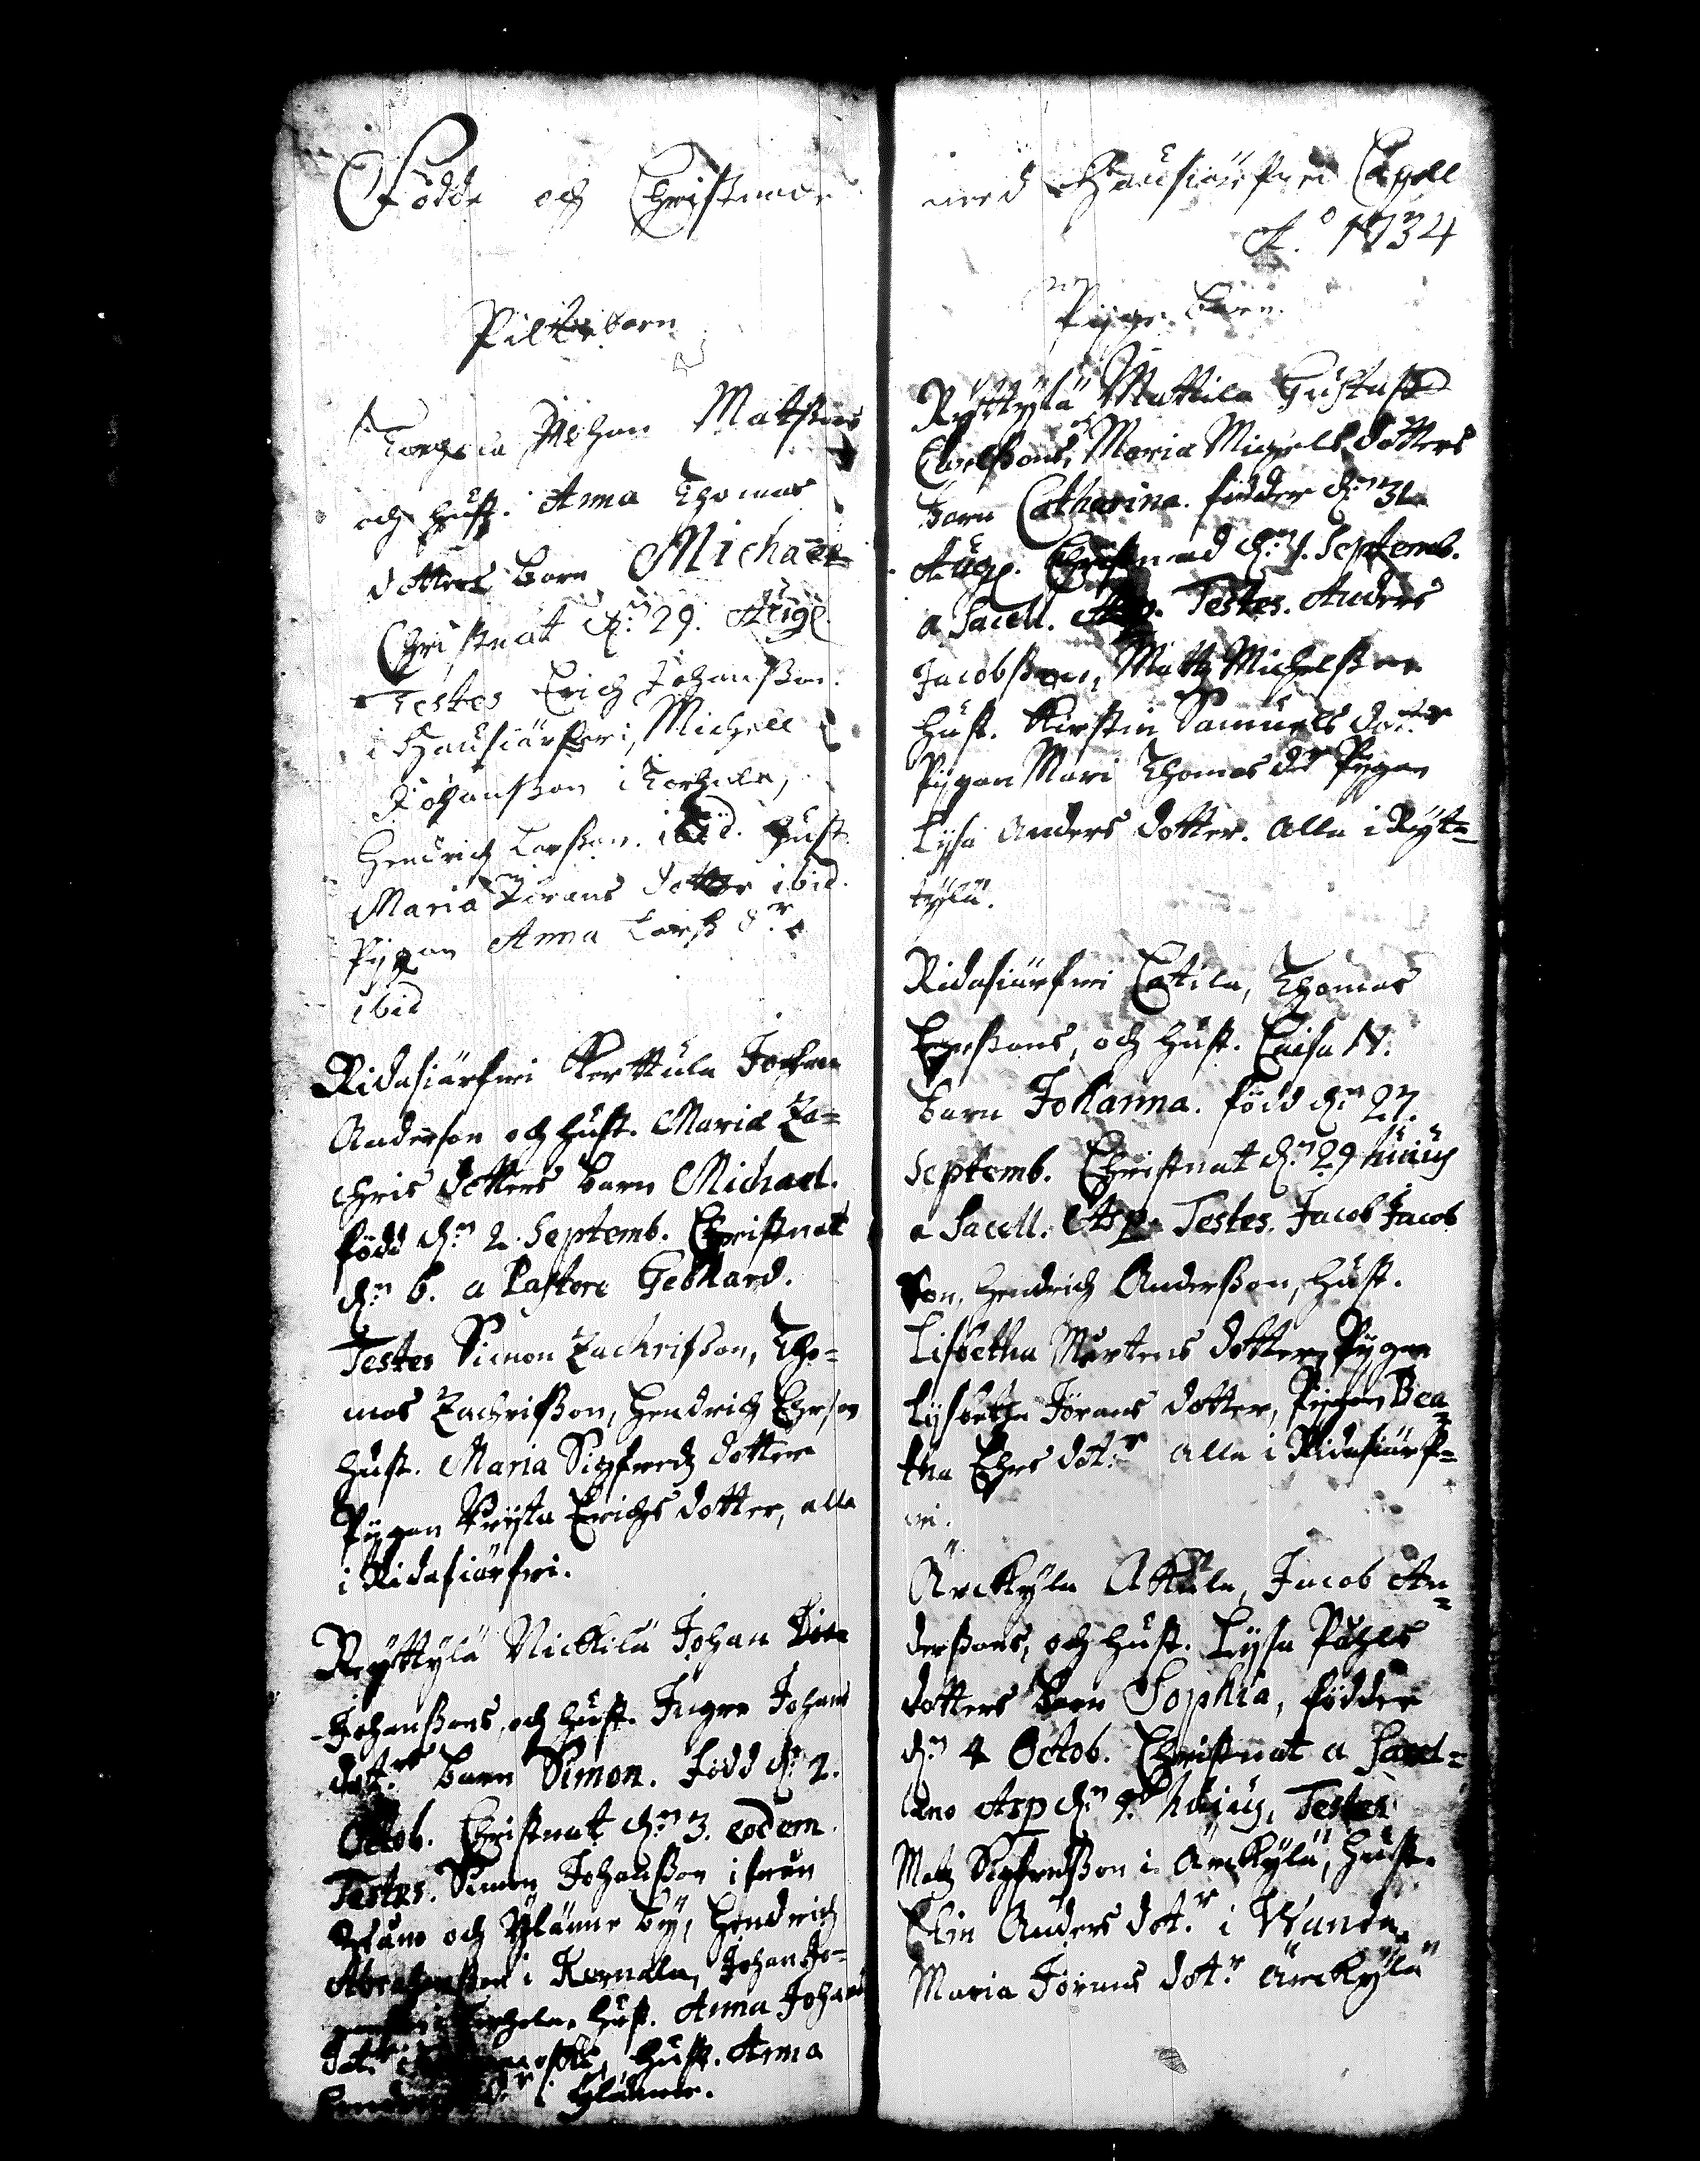 Födde och Christnade
Piltebarn
Torhola Johan Matssons
och hust. Anna Thomas
dotters barn Michaël
Christnat d:n 29. Aug.
Testes Erich Johansson
i Hausiärfwi, Michell
Johansson i Torhola,
Hendrich Larsson. ibid. hust.
Maria Jörans dotter ibid.
Pygan Anna Larss d:r
ibid
Ridasiärfwi Kerttula Johan
Anderson och hust. Maria Za=
chris dotters barn Michael.
född d:n 2. Septemb. Christnat
d:n 6. a Pastore Gebhard.
Testes Simon Zachrisson, Tho=
mas Zachrisson, Hendrich Ehrson
hust. Maria Sigfredz dotter
Pygan Krijsta Erichs dotter, alla
i Ridasiärfwi.
Ryttylä Nickilä Johan
Johanssons, och hust. Ingre Johans
dot:rs barn Simon. Född d:n 2.
Octob. Christnat d:n 3. eodem.
Testes. Simon Johansson ifrån
och Hlänne by, Hendrich
Abrahamsson i Karnala, Johan Jo=
hust. Anna Johans
dot:r hust. Anna
i Hlänne.
med Hausiärfwi Capell
A:o 1734
Pyge Barn.
Ryttylä Mattila Gustaf
Carlssons, och Maria Michels dotters
barn Catharina. födder d:n 31
Aug. Christnad d:n 1. Septemb.
a Sacell. Asp. Testes. Anders
Jacobsson, Matz Michelsson
hust. Kirstin Samuels dot:r
Pygan Mari Thomas d:r Pygan
Lysa Anders dotter. Alla i Ryt=
tylä.
Ridasiärfwi Eskila, Thomas
Ersssons, och hust. Caisa N.
barn Johanna. född d:n 27.
Septemb. Christnat d:n 29 huius
a Sacell. Asp. Testes. Jacob Jacob
son, Hendrich Andersson, hust.
Lisbetha Mårtens dotter, Pygan
Lysbetha Jörans dotter, Pygan Bea=
tha Ehrs dot:r Alla i Ridasiärf=
wi.
Arckylä Akkala, Jacob An=
derssons, och hust. Lysa Påhls
dotters barn Sophia, födder
d:n 4 Octob. Christnat a Sacel=
lano Asp d:n 9. hujus, Testes
Matz Sigfredsson i Arckylä, hust.
Elin Anders dot:r i Wanda,
Maria Jörans dot:r Ärckylä